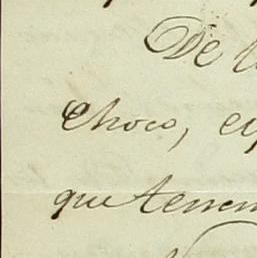 De l
Choco, ey
que tenem